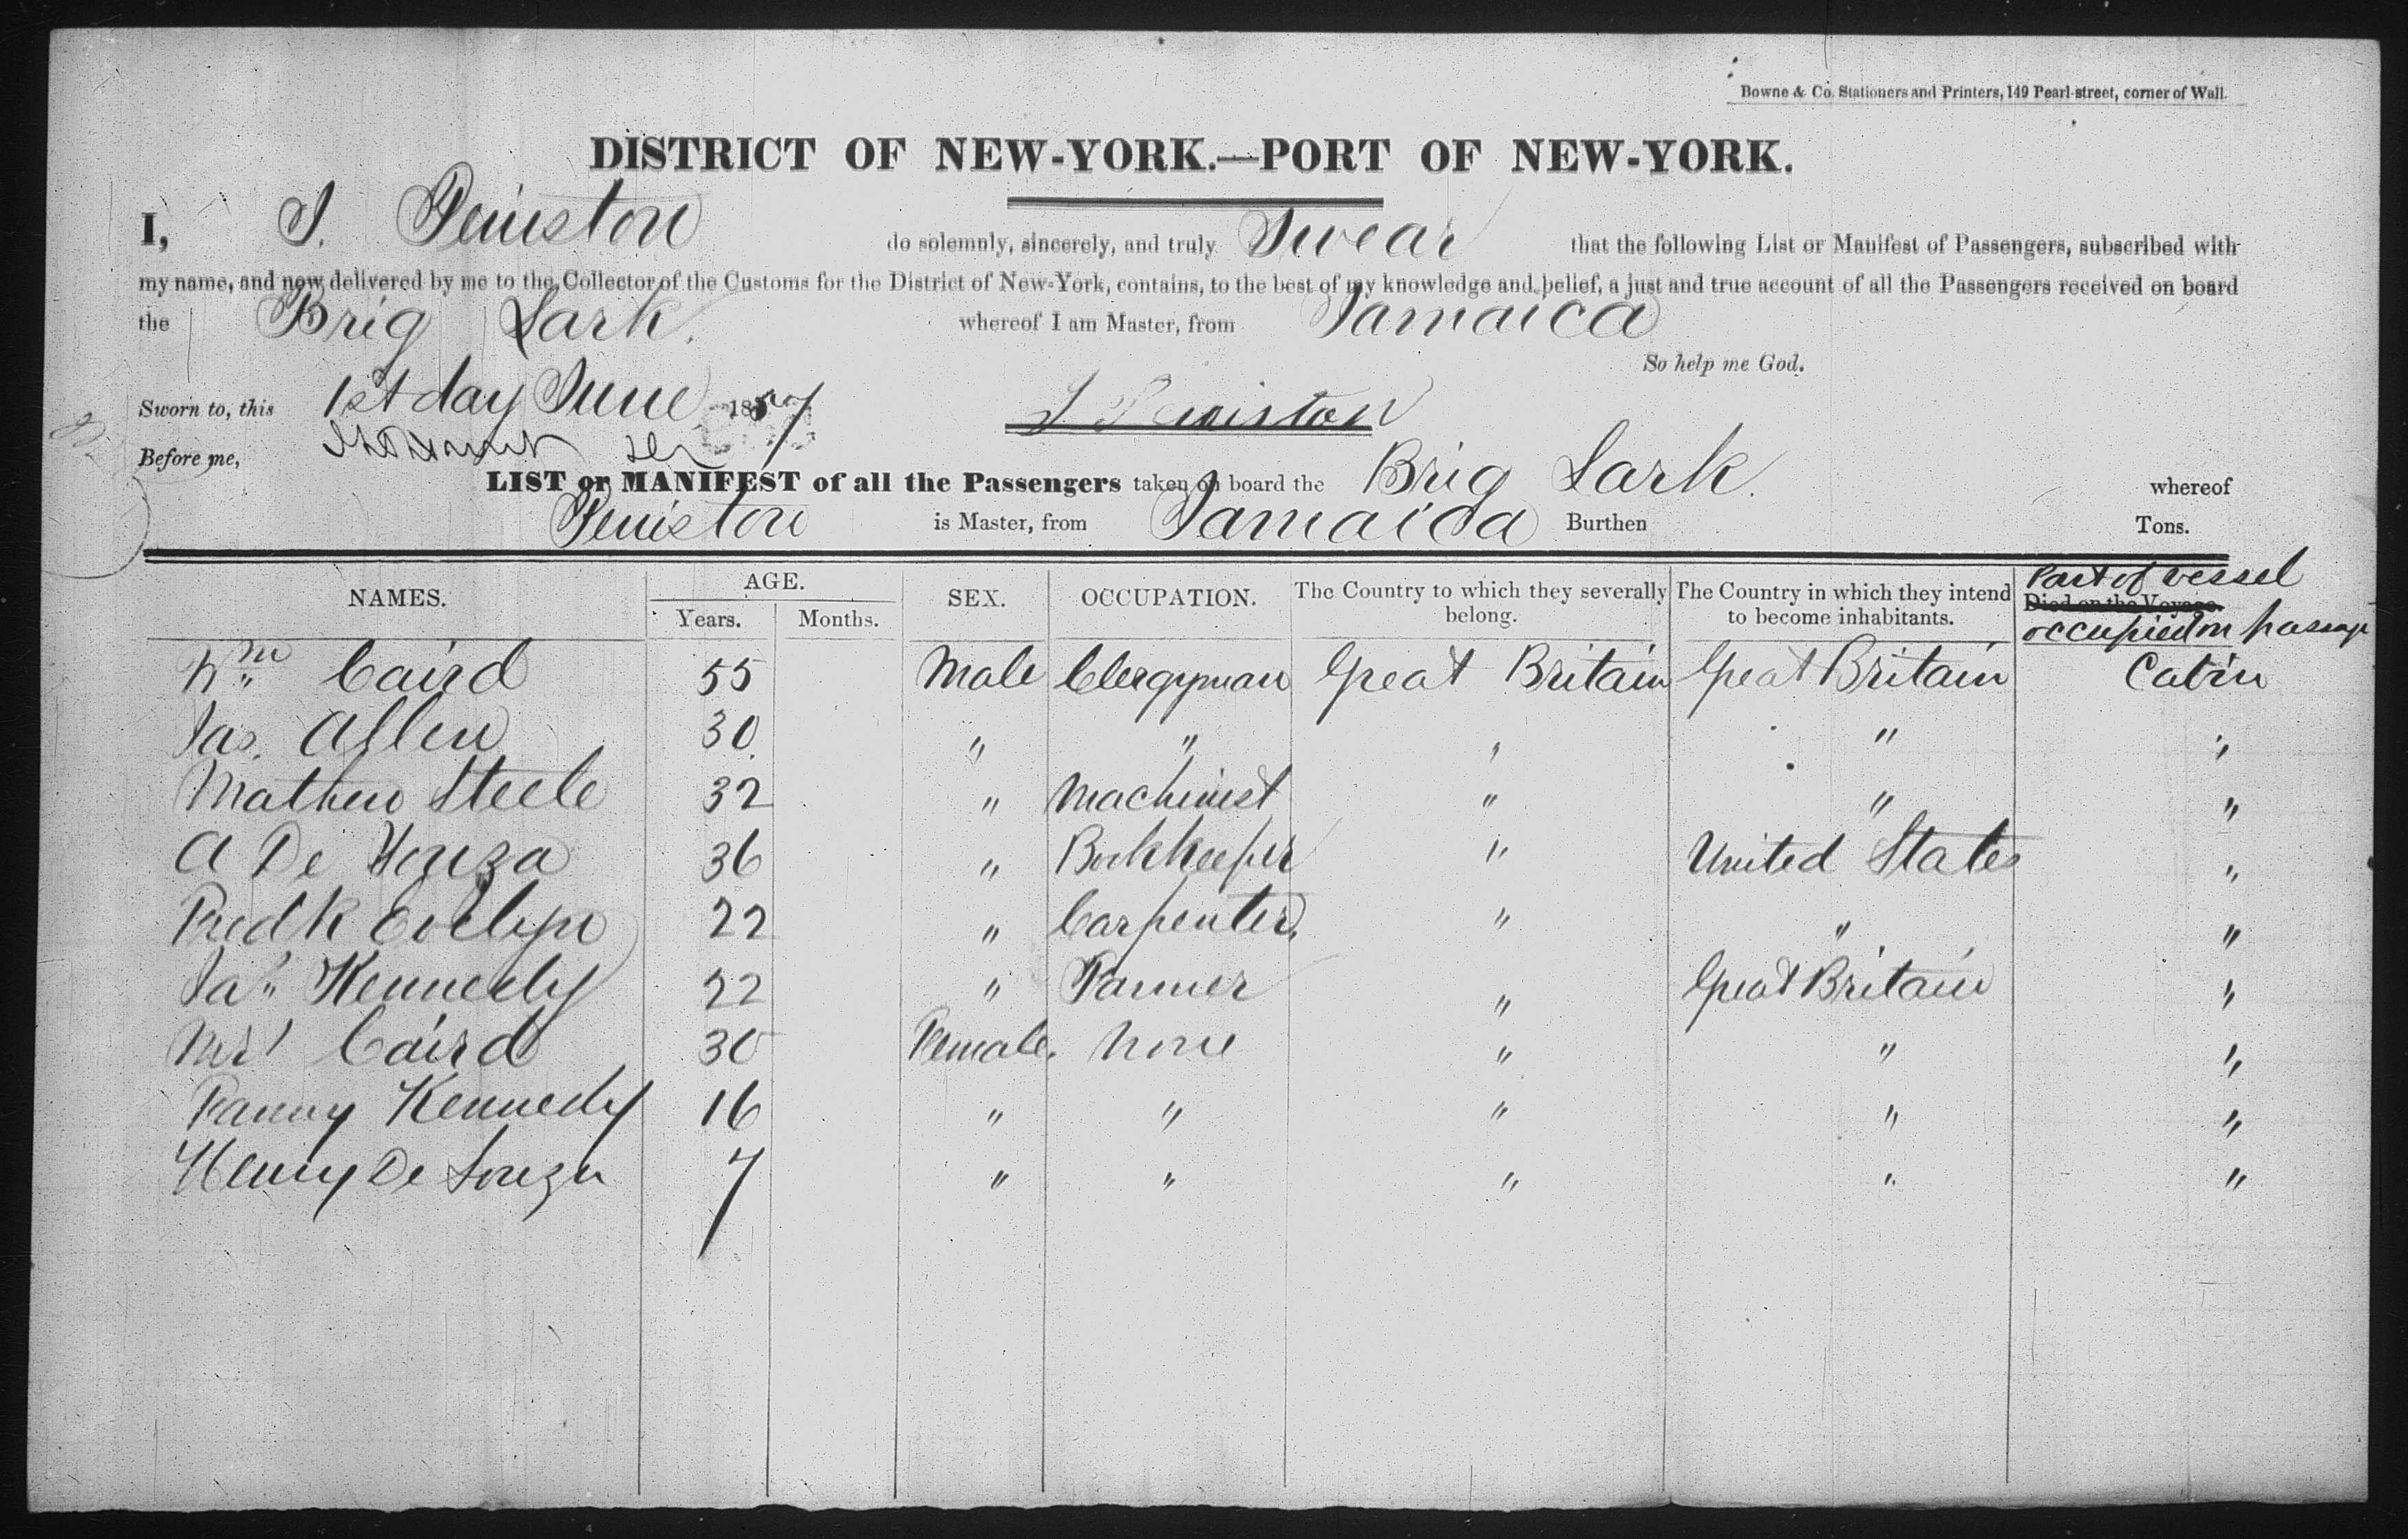 Bowne & Co. Stationers and Printers, 149 Pearl-street, corner of Wall.
DISTRICT OF NEW-YORK.—PORT OF NEW-YORK.
I, S. Peniston do solemnly, sincerely, and truly Swear that the following List or Manifest of Passengers, subscribed with
my name, and now delivered by me to the Collector of the Customs for the District of New-York, contains, to the best of my knowledge and belief, a just and true account of all the Passengers received on board
the Brig Lark. whereof I am Master, from Jamaica
So help me God.
Sworn to, this 1st day June 1857 S Peniston
Before me,
LIST or MANIFEST of all the Passengers taken on board the Brig Lark. whereof
Peniston is Master, from Jamaica Burthen Tons.
NAMES. AGE. Years. Months. SEX. OCCUPATION. The Country to which they severally belong. The Country in which they intend to become inhabitants. Part of vessel Died on the Voyage. occupied on passage
Wm Caird 55 Male Clergyman Great Britain Great Britain Cabin
Jas. Allen 30 " " " " "
Mathew Steele 32 " Machinist " " "
A De Souza 36 " Bookkeeper " United States "
Fredk Evelyn 22 " Carpenter " " "
Jas Kennedy 22 " Farmer " Great Britain "
Mrs Caird 30 Female. None " " "
Fanny Kennedy 16 " " " " "
Henry De Souza 7 " " " " "